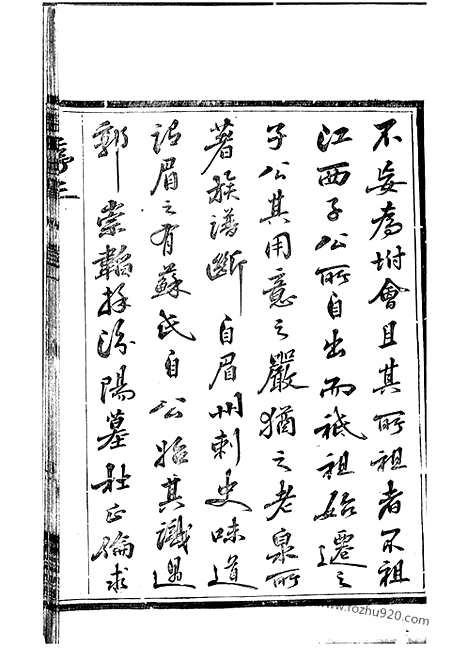 不妄為坿會且其所祖者不祖
江西子公所自出而祗祖始遷之
子公其用意之嚴猶之老泉所
著族譜斷自眉州刺史味道
謂眉之有蘇氏自公始其識過
郭崇韜拜汾陽墓杜正倫求
www.fozhu920.com